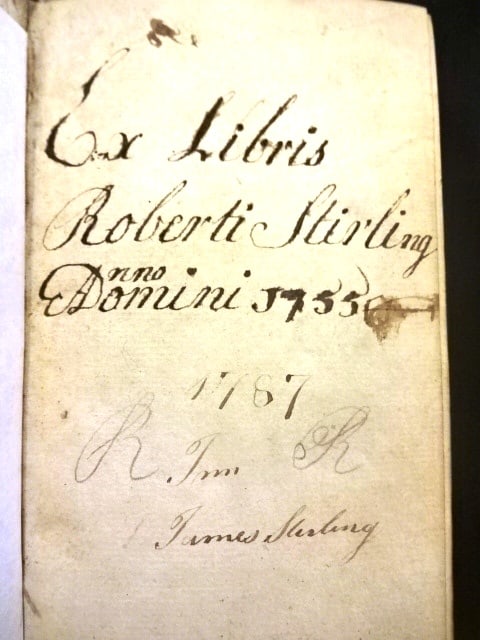 Ex Libris
Roberti Stirling
Anno Domini 1755
1787
R R
James Stirling